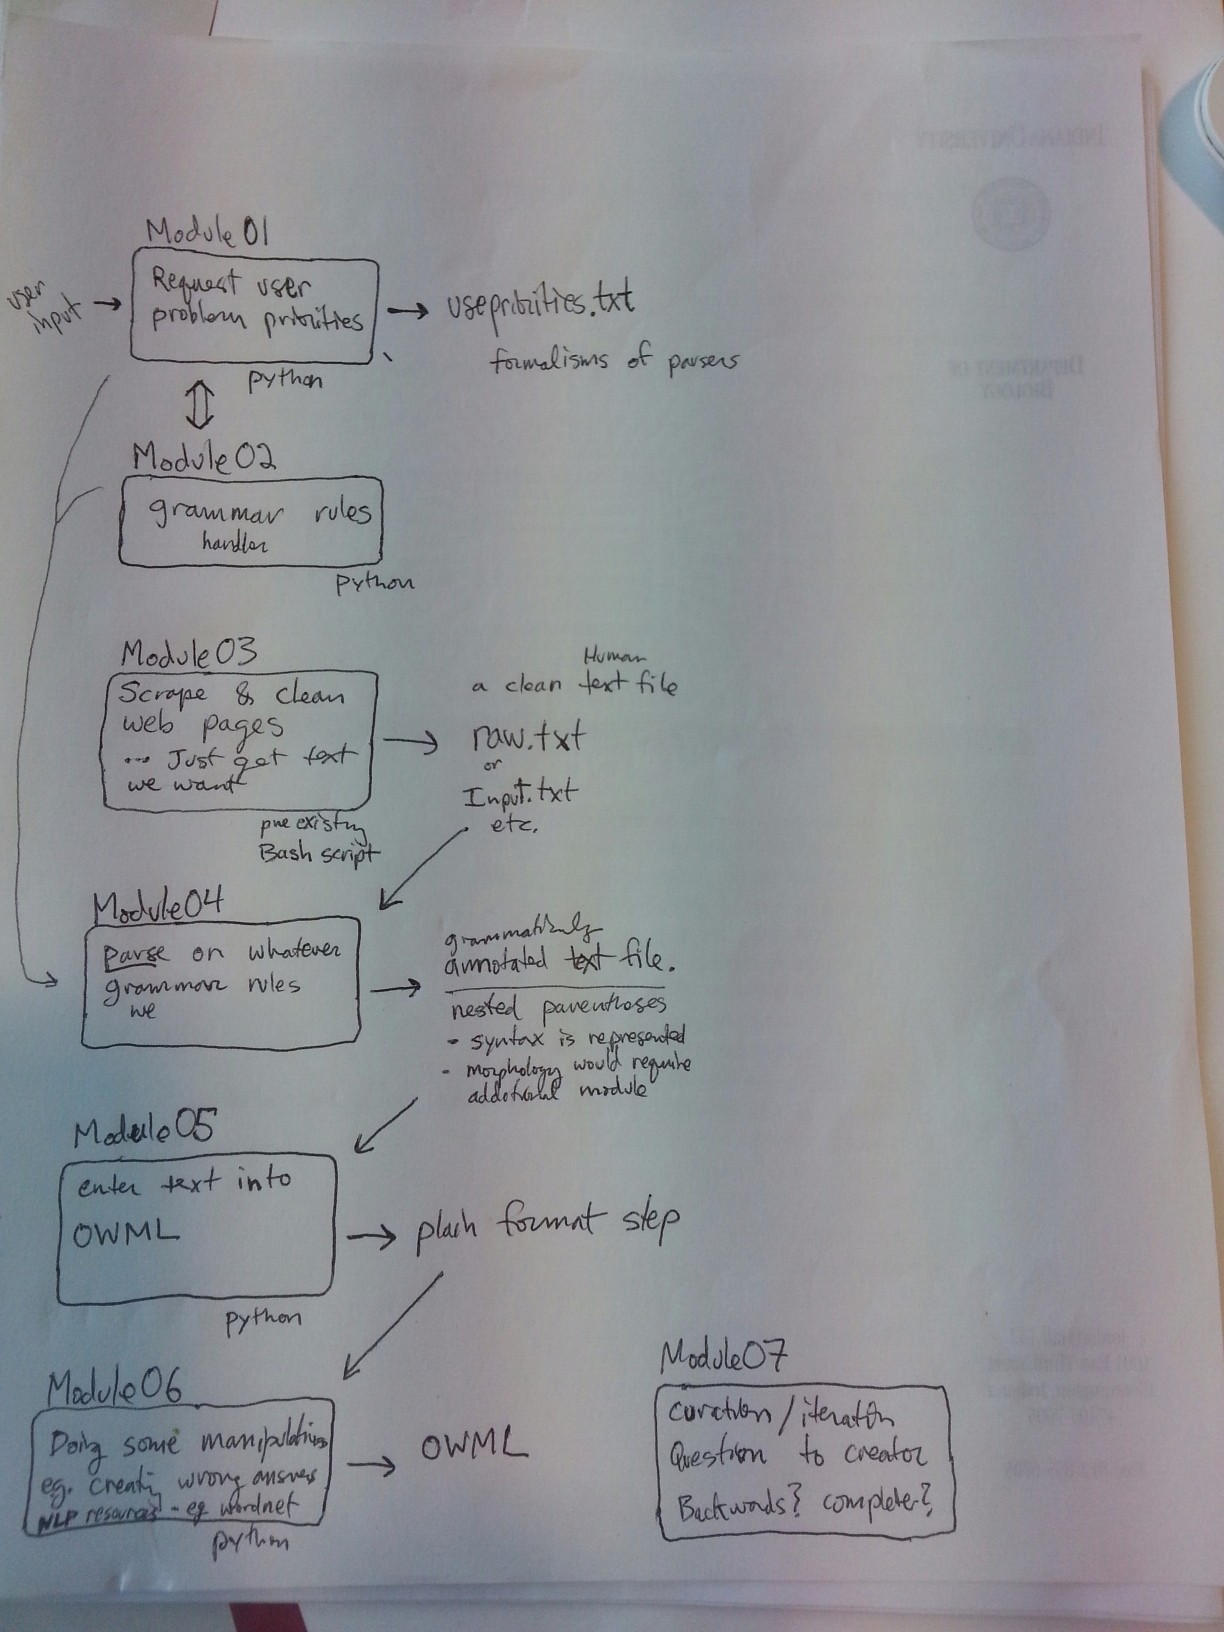 Module 01
user
input
Request user
problem priorities
userpriorities.txt
formalisms of parsers
python
Module 02
grammar rules
handler
python
Module 03
Scrape & clean
web pages
... Just get text
we want
pre existing
Bash script
Human
a clean text file
raw.txt
or
Input.txt
etc.
Module 04
parse on whatever
grammar rules
we
grammatically
annotated text file.
nested parentheses
- syntax is represented
- morphology would require
additional module
Module 05
enter text into
OWML
python
format step
Module 06
Doing some manipulations
eg. creating wrong answers
NLP resources - eg wordnet
python
OWML
Module 07
curation / iteration
Question to creator
Backwards? completer?
INDIANA UNIVERSITY
DEPARTMENT OF
BIOLOGY